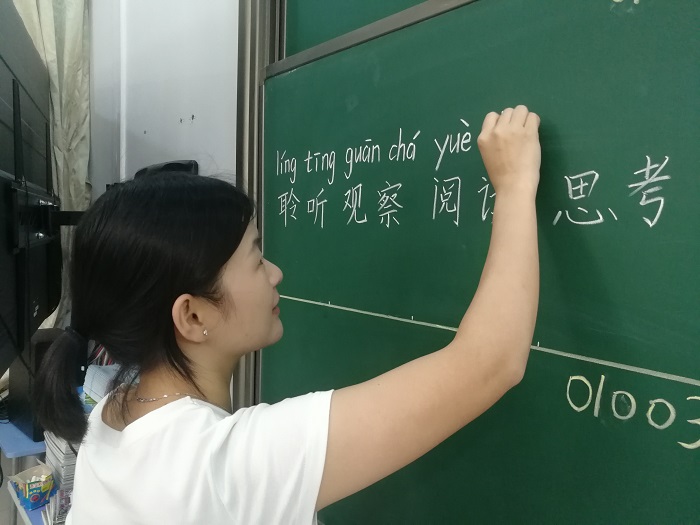 líng tīng guān chá yuè
聆听 观察 阅 思考
01003